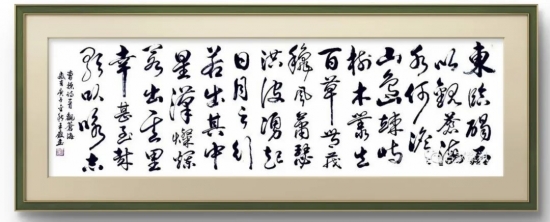 東臨碣石
以觀蒼海
水何澹
山島竦峙
樹木叢生
百草豐茂
穐風蕭瑟
洪波湧起
日月之行
若出其中
星漢燦爛
若出其里
幸甚至哉
歌以咏志
曹操詩 觀蒼海
庚子